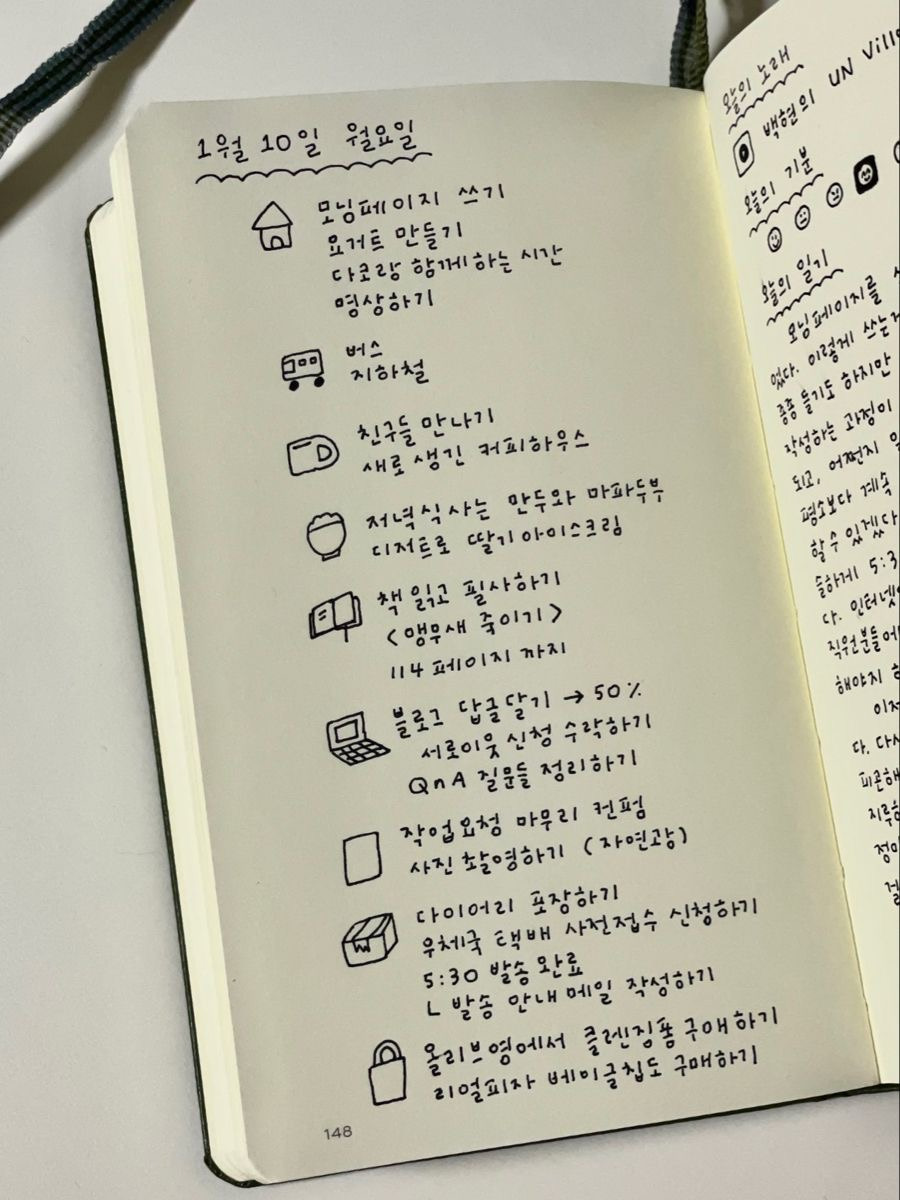 1월 10일 월요일
모닝페이지 쓰기
요거트 만들기
다코랑 함께하는 시간
명상하기
버스
지하철
친구들 만나기
새로 생긴 커피하우스
저녁식사는 만두와 마파두부
디저트로 딸기아이스크림
책 읽고 필사하기
<앵무새 죽이기>
114 페이지 까지
블로그 답글달기 → 50%
서로이웃 신청 수락하기
QnA 질문들 정리하기
작업요청 마무리 컨펌
사진 촬영하기 (자연광)
다이어리 포장하기
우체국 택배 사전접수 신청하기
5:30 발송 완료
ㄴ 발송 안내 메일 작성하기
올리브영에서 클렌징폼 구매하기
리얼피자 베이글칩도 구매하기
148
오늘의 노래
백현의 UN Villa
오늘의 기분
오늘의 일기
모닝페이지를
었다. 이렇게 쓰는
종종 들기도 하지만
작성하는 과정이
되고, 어쩐지
평소보다 계속
할 수 있겠다
솔하게 5:3
다. 인터넷
직원분들에
해야지
이제
다. 다시
피곤해
지루하